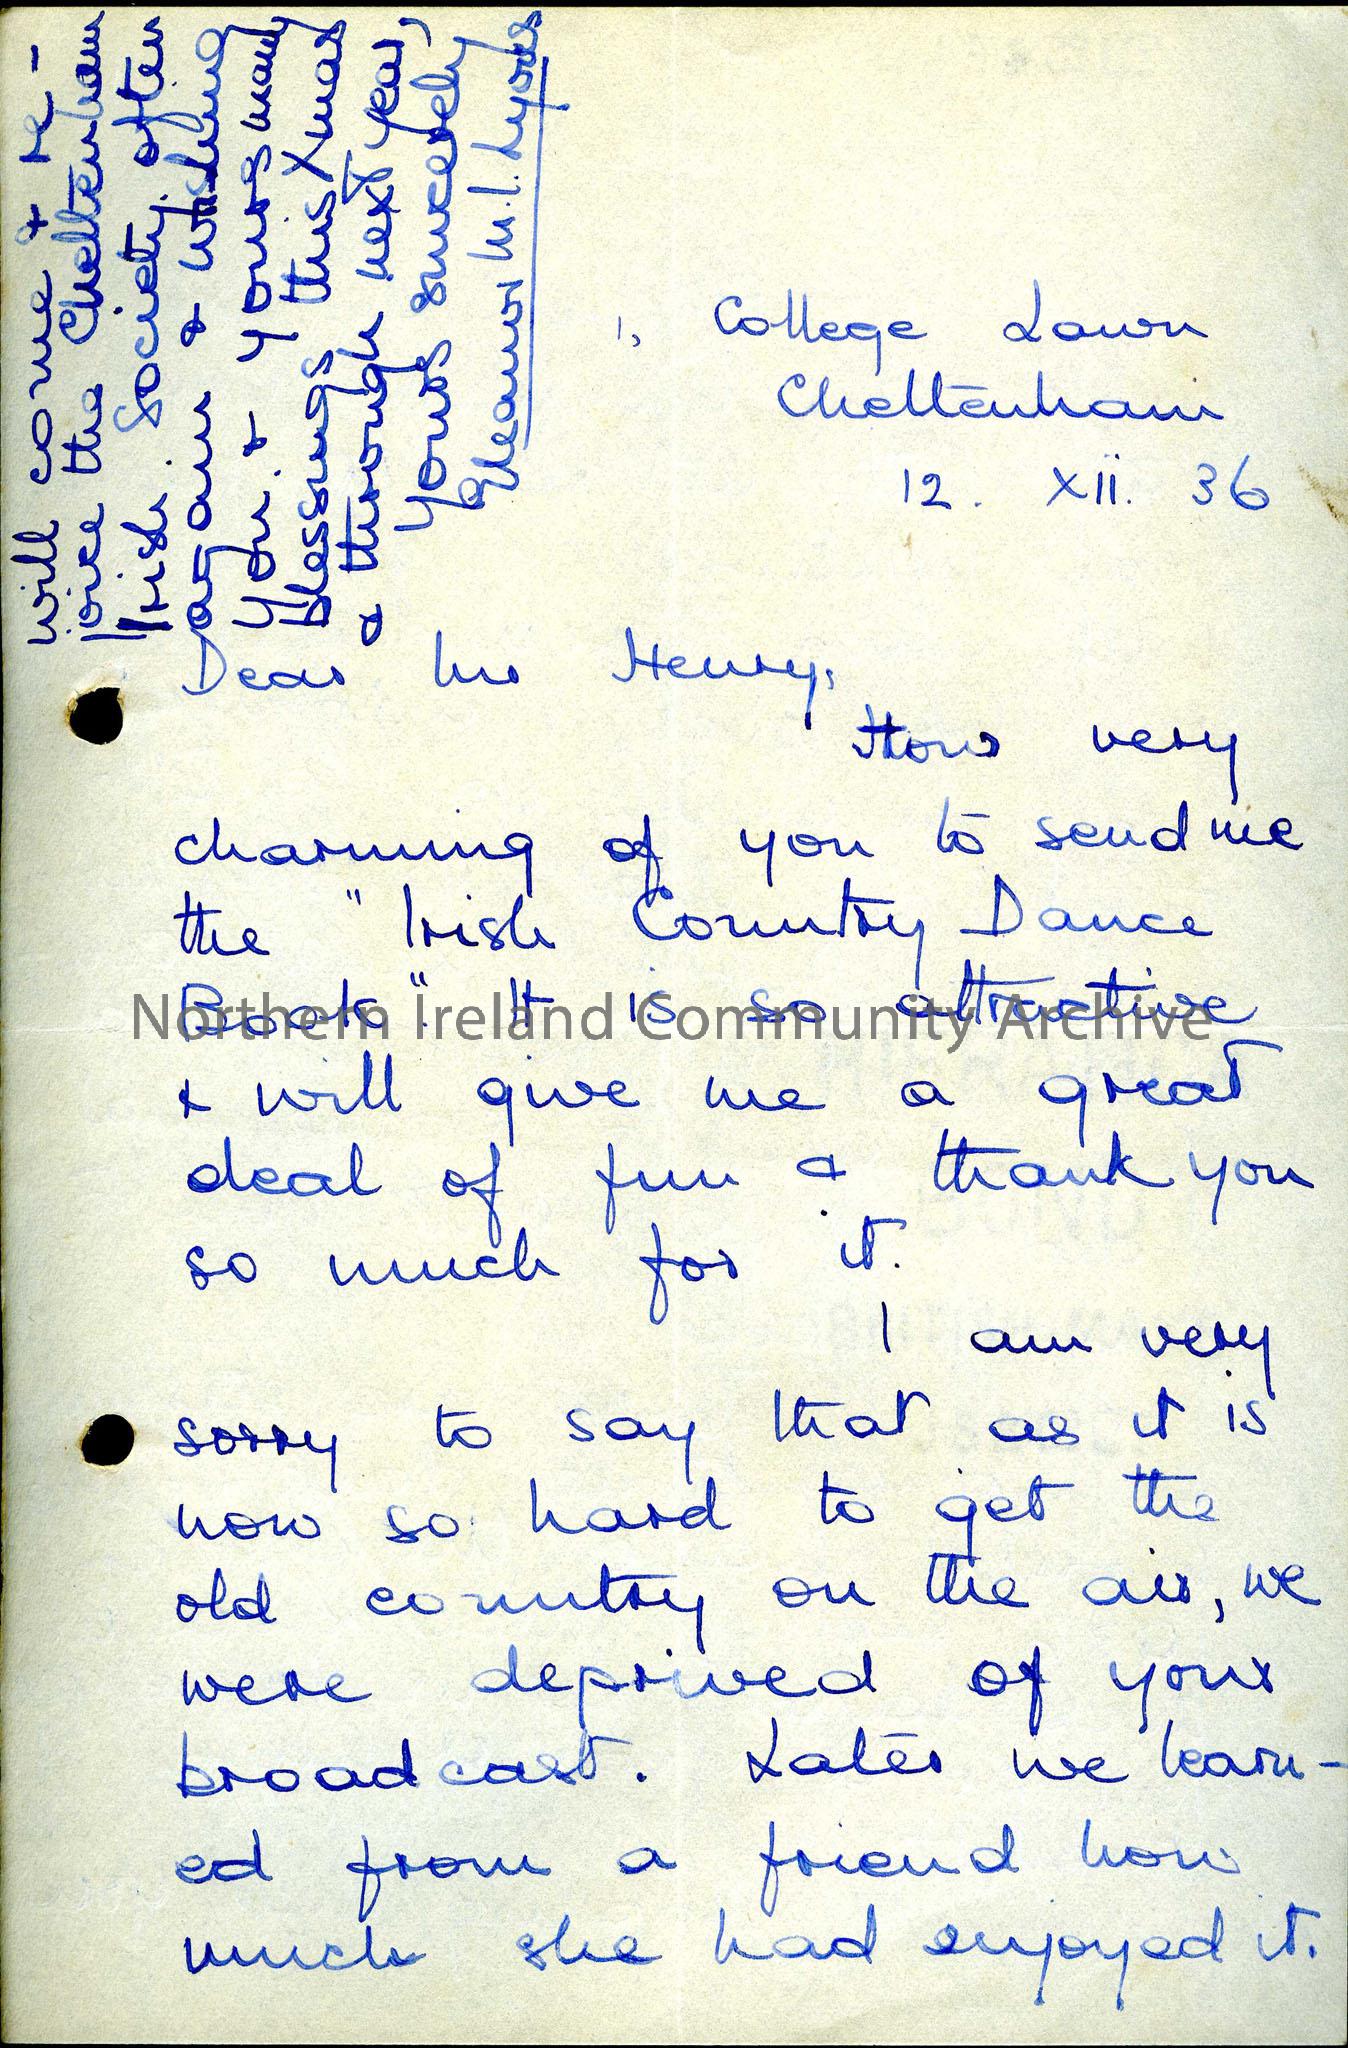 1, College Lawn
Cheltenham
12. XII. 36
Dear Mr Henry,
How very
charming of you to send me
the "Irish Country Dance
Book". It is so attractive
& will give me a great
deal of fun & thank you
so much for it.
I am very
sorry to say that as it is
now so hard to get the
old country on the air, we
were deprived of your
broadcast. Later we learn-
ed from a friend how
much she had enjoyed it.
will come & re-
joice the Cheltenham
Irish Society often
again & wishing
You & Yours many
blessings this Xmas
& through next Year,
Yours sincerely
Eleanor M.I. Lyons
Northern Ireland Community Archive